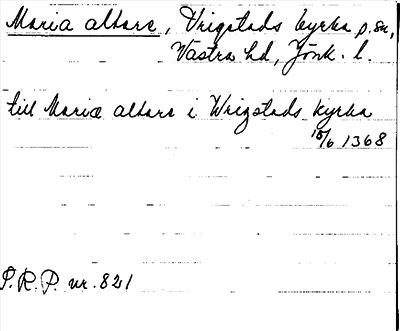 Maria altare, Vrigstads kyrka p. sn,
Västra hd, Jönk. l.
till Mariæ altare i Wrigstads kyrka
10/6 1368
S.R.P. nr. 821